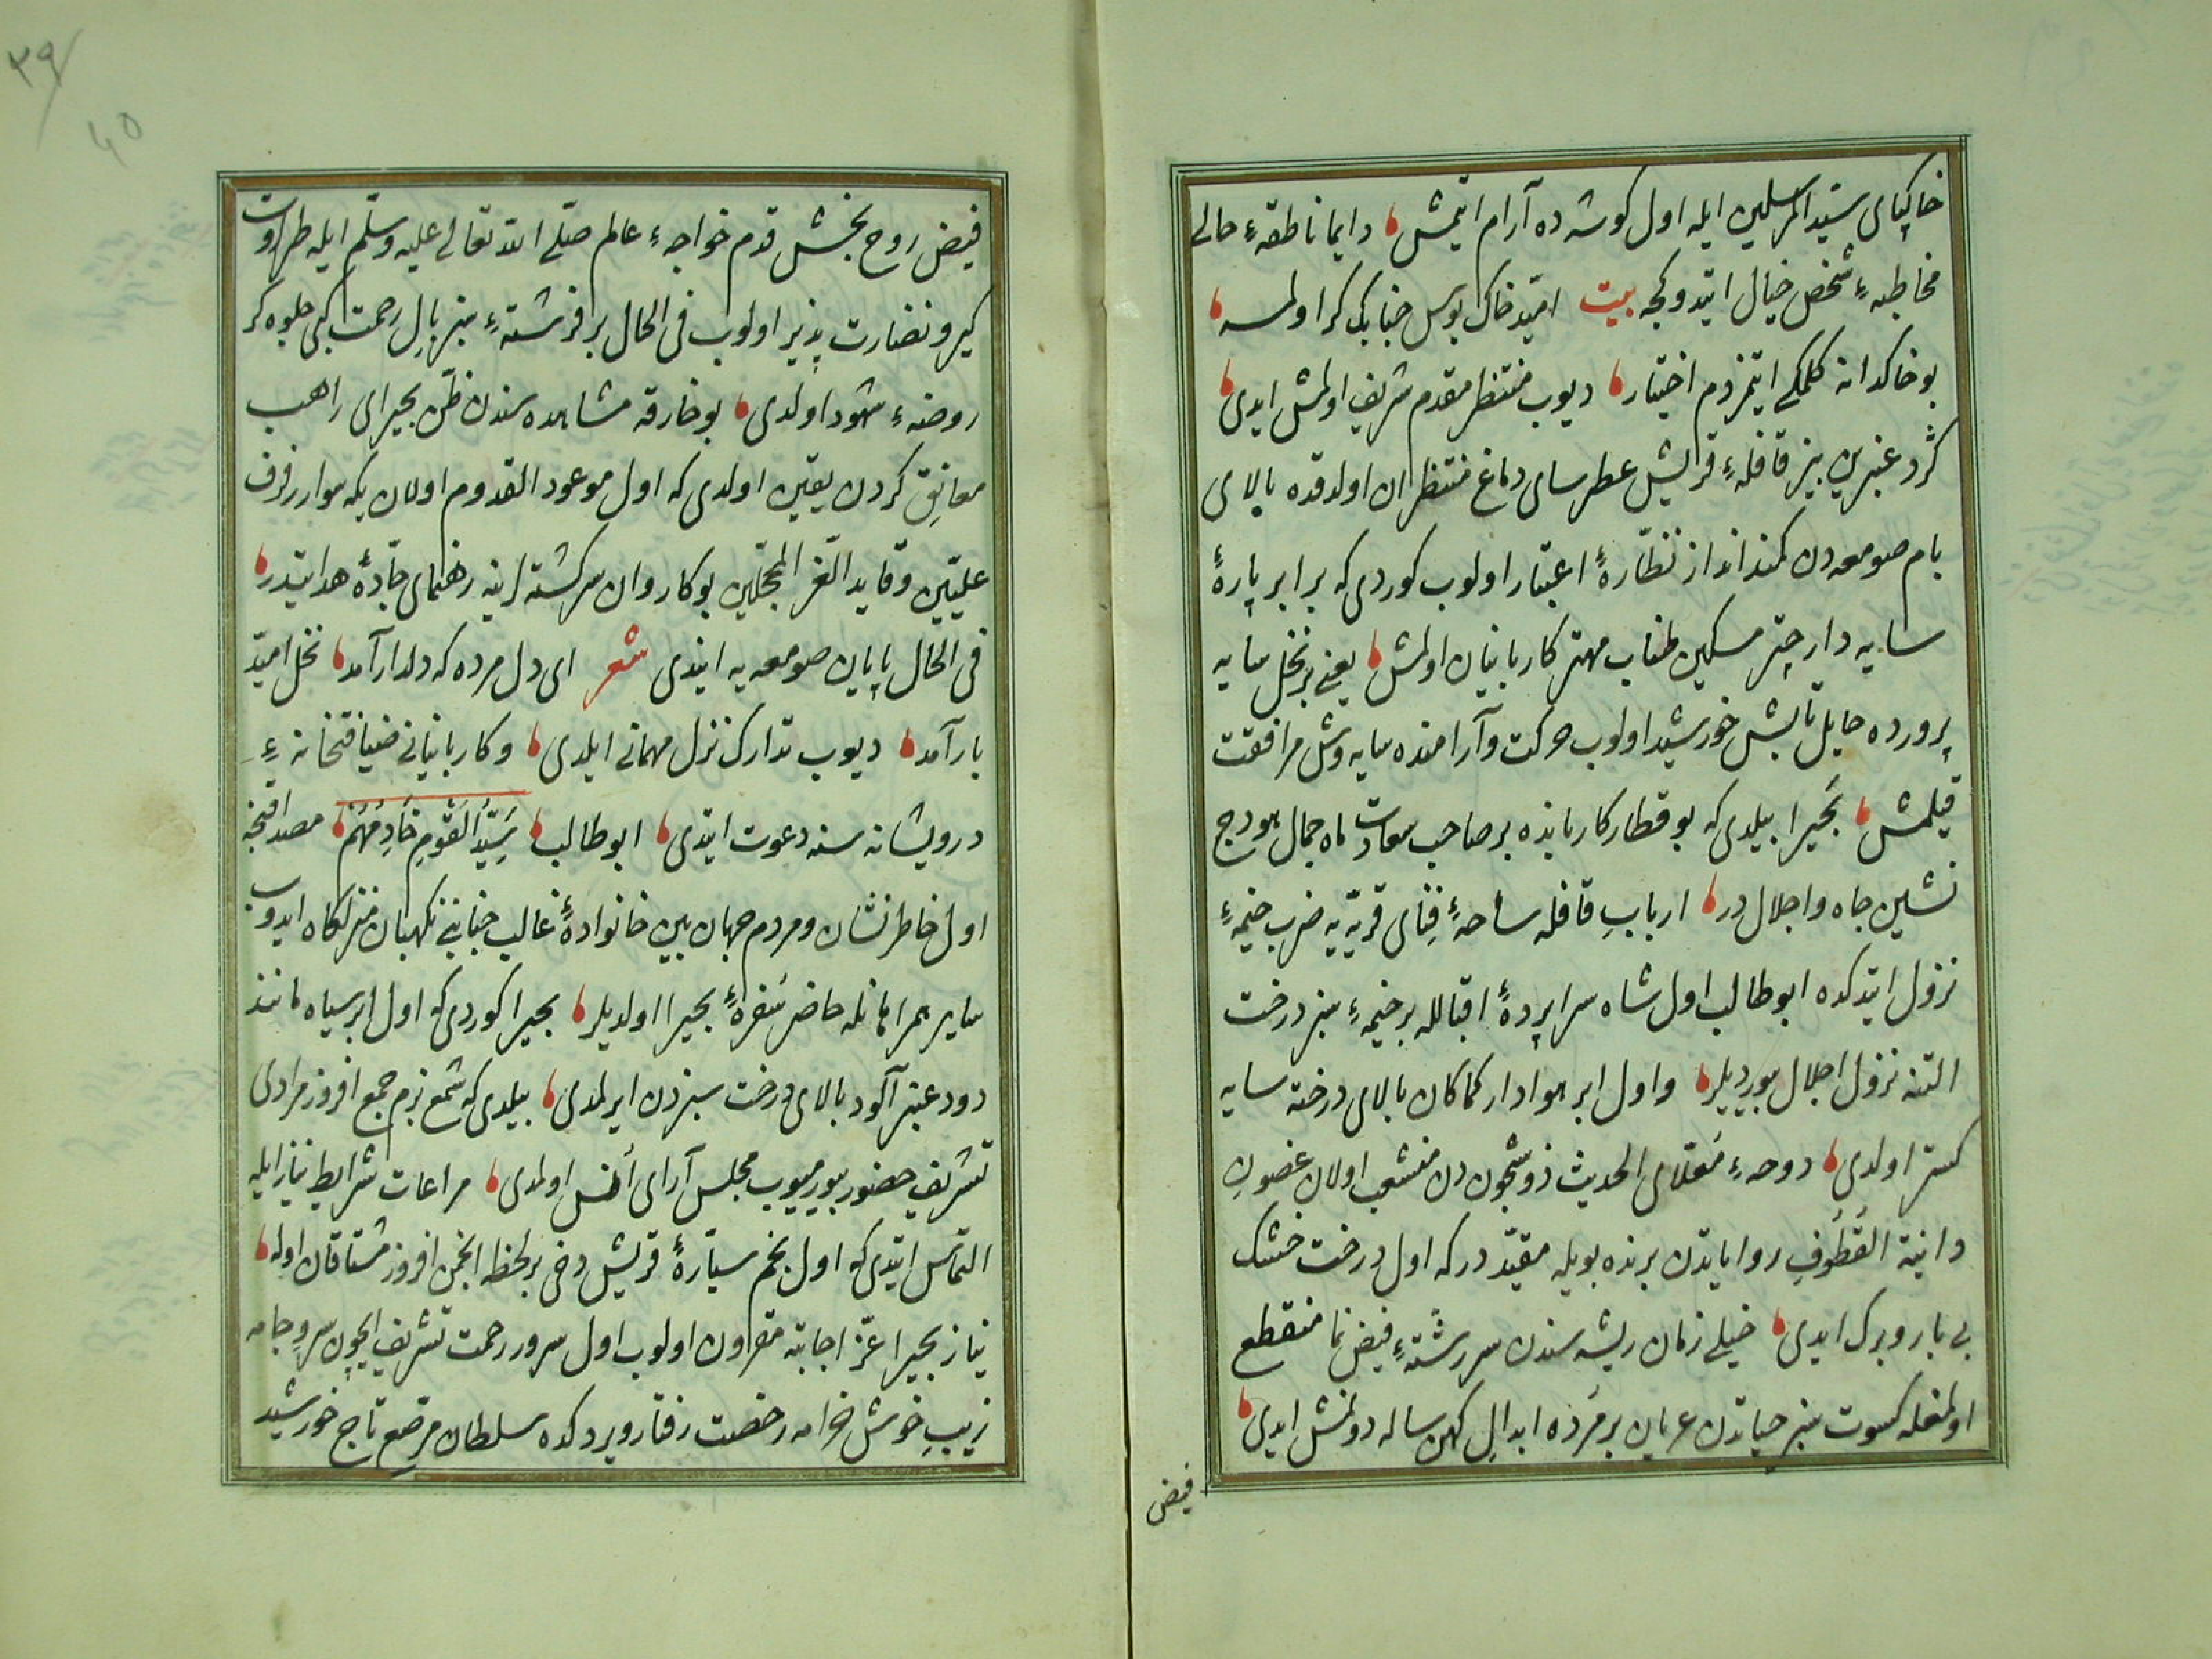 خاكپای سيّد المرسلين ايله اول كوشه ده آرام ايتمش، دايما ناطقهٔ حالی
مخاطبهٔ شخص خيال ايتدوكجه بيت اميد خاك بوس جنابك كر اولمسه،
بو خاكدانه كلمكی ايتمزدم اختيار، ديوب منتظر مقدم شريف اولمش ايدی،
كرد عنبرين بيز قافلهٔ قريش عطرسای دماغ منتظران اولدقده بالای
بام صومعه دن كمند انداز نظّارهٔ اعتبار اولوب كوردی كه بر ابر پارهٔ
سايه دار چتر مسكين طناب مهتر كاربانيان اولمش، يعنی بر نخل سايه
پرورده حايل تابش خورشيد اولوب حركت وآرامنده سايه وش مرافقت
قيلمش، بحيرا بيلدی كه بو قطار كاربانده بر صاحب سعادت ماه جمال هودج
نشين جاه واجلال در، ارباب قافله ساحهٔ فنای قريّه يه ضرب خيمهٔ
نزول ايتدكده ابو طالب اول شاه سراپردهٔ اقبالله بر خيمهٔ سبز درخت
التنه نزول اجلال بيورديلر، واول ابر هوادار كماكان بالای درخته سايه
كستر اولدی، دوحهٔ معلّای الحديث ذو شجون دن منشعب اولان غصون
دانية القطوف روايادتن برنده بويله مقيّد در كه اول درخت خشك
بی بار وبرك ايدی، خيلی زمان ريشه سندن سررشتهٔ فيض نما منقطع
اولمغله كسوت سبز حياتدن عريان بر مرده ابدال كهن ساله دونمش ايدی،
فيض
۳۹
۴۰
فيض روح بخش قدم خواجهٔ عالم صلّی الله تعالی عليه وسلّم ايله طراوت
كير ونضارت پذير اولوب فی الحال بر فرشتهٔ سبز بال رحمت كبی جلوه كر
روضهٔ شهود اولدی، بو خارقه مشاهده سندن ظنّ بحيرای راهب
معانق كردن يقين اولدی كه اول موعود القدوم اولان يكه سوار رفرف
علّيّين وقايد الغرّ المحجّلين بو كاروان سركشته لرينه رهنمای جادّهٔ هدايتدر،
فی الحال پايان صومعه يه ايندی شعر ای دل مرده كه دلدار آمد، نخل اميد
بار آمد، ديوب تدارك نزل مهمانی ايلدی، وكاربانيانی ضيافتخانهٔ
درويشانه سنه دعوت ايتدی، ابو طالب، سَيِّدُ القَومِ خَادِمُهُم، مصداقنجه
اول خاطرنشان ومردم جهان بين خانوادهٔ غالب جنابنی نكهبان منزلكاه ايدوب
ساير همراهانله حاضر سفرهٔ بحيرا اولديلر، بحيرا كوردی كه اول ابر سياه مانند
دود عنبر آلود بالای درخت سبزدن ايرلمدی، بيلدی كه شمع بزم جمع افروز مرادی
تشريف حضور بيورميوب مجلس آرای انس اولمدی، مراعات شرايط نياز ايله
التماس ايتدی كه اول نجم سيّارهٔ قريش دخی بر لحظه انجمن افروز مشتاقان اوله،
نياز بحيرا عزّ اجابته مقرون اولوب اول سرور رحمت تشريف ايچون سرو جامه
زيب خوش خرامه رخصت رفتار ويردكده سلطان مرصّع تاج خورشيد